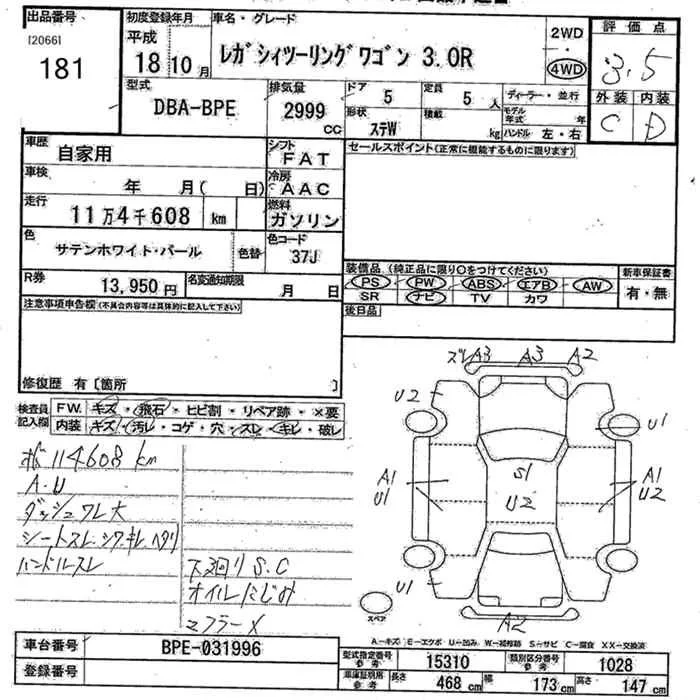 出品番号 初度登録年月 車名・グレード 2WD 評価点
[2066]
181
平成 18 10月
レガシィツーリングワゴン 3.0R
4WD
3.5
型式 排気量 ドア 5 定員 5人 ディーラー・並行 外装 内装
DBA-BPE 2999 CC 形状 ステW 積載 kg モデル年式 年 ハンドル 左・右 C D
車歴 自家用 シフト FAT セールスポイント(正常に機能するものに限ります)
車検 年 月( 日) 冷房 AAC
走行 11万4千608 km 燃料 ガソリン
色 サテンホワイト・パール 色替 色コード 37J
R券 13,950円 名変通知期限 月 日
装備品 (純正品に限り○をつけてください) 新車保証書
PS PW ABS エアB AW 有・無
SR ナビ TV カワ
後日品
注意事項申告欄(不具合内容等は具体的に記入して下さい)
修復歴 有〔箇所 〕
検査員記入欄 FW. キズ・飛石・ヒビ割・リペア跡・×要
内装 キズ・汚レ・コゲ・穴・スレ・キレ・破レ
114608 km
A.U
ダッシュワレ大
シートスレ.シワ.キレ.ヘタリ
ハンドルスレ
下廻り S.C
オイルにじみ
マフラーX
ズレA3 A3 A2
U2 U1
A1 U1 S1 U2 A1 U2
U1
A2
スペア
A-キズ E-エクボ U-凹み W-補修跡 S-サビ C-腐食 XX-交換済
車台番号 BPE-031996
登録番号
型式指定番号 参考 15310 類別区分番号 参考 1028
車庫証明用 参考 長さ 468 cm 幅 173 cm 高さ 147 cm